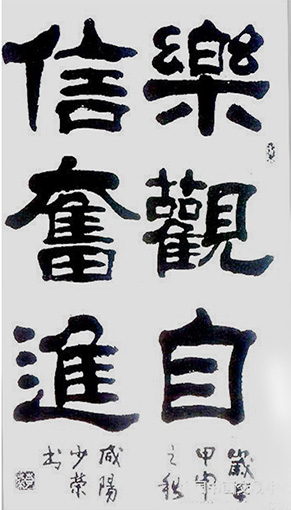 樂觀自
信奮進
歲在
甲申
之秋
咸陽
少榮
书